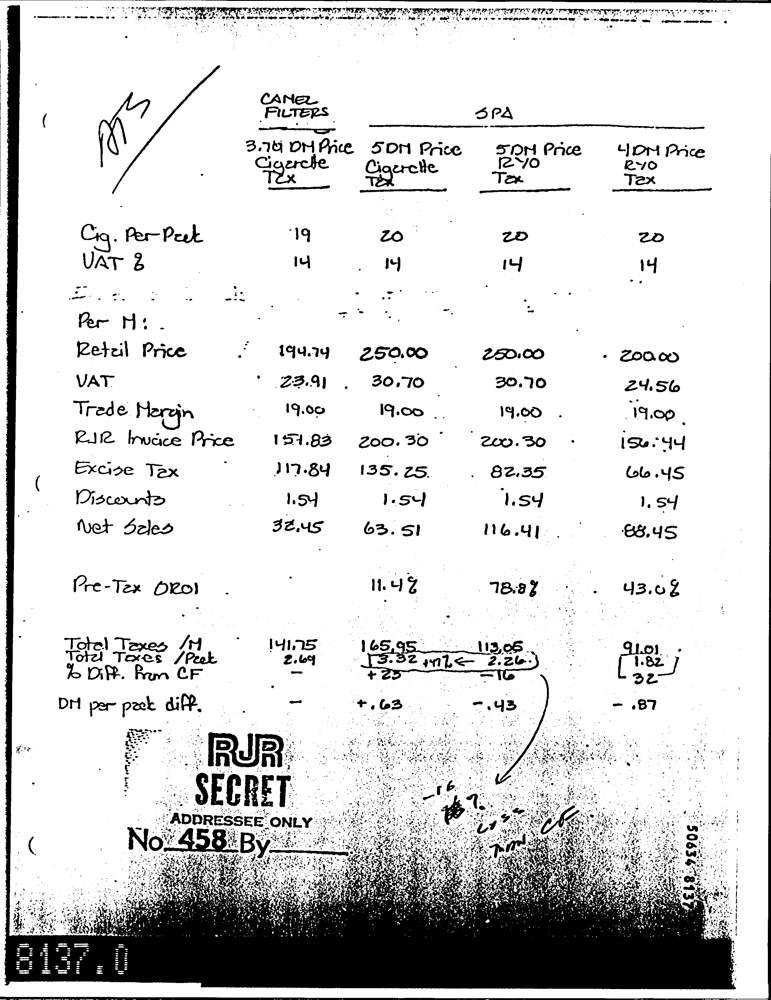 CAMEL
FILTERS SPA
3.70 DM Price 5DM Price 5DM Price 4DM Price
Cigarette Cigarette RYO RYO
Tax Tax Tax Tax
Cig. Per Pack 19 20 20 20
VAT % 14 14 14 14
Per M:
Retail Price 194.74 250.00 250.00 200.00
VAT 23.91 30.70 30.70 24.56
Trade Margin 19.00 19.00 19.00 19.00
RJR Invoice Price 151.83 200.30 200.30 156.44
Excise Tax 117.84 135.25 82.35 66.45
Discounts 1.54 1.54 1.54 1.54
Net Sales 32.45 63.51 116.41 88.45
Pre-Tax OROI 11.4% 78.8% 43.0%
Total Taxes /M 141.75 165.95 113.05 91.01
Total Taxes /Pack 2.69 3.32 +47% ← 2.26 1.82
% Diff. From CF – +23 -16 -32
DM per pack diff. – +.63 -.43 -.87
-16
%
less
than CF
RJR
SECRET
ADDRESSEE ONLY
No. 458 By
50634 8137
8137.0